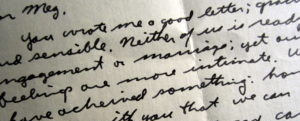 Meg,
You wrote me a good letter;
and sensible. Neither of us is ready
engagement or marriage; yet our
feelings are more intimate.
have achieved something.
with you that we can